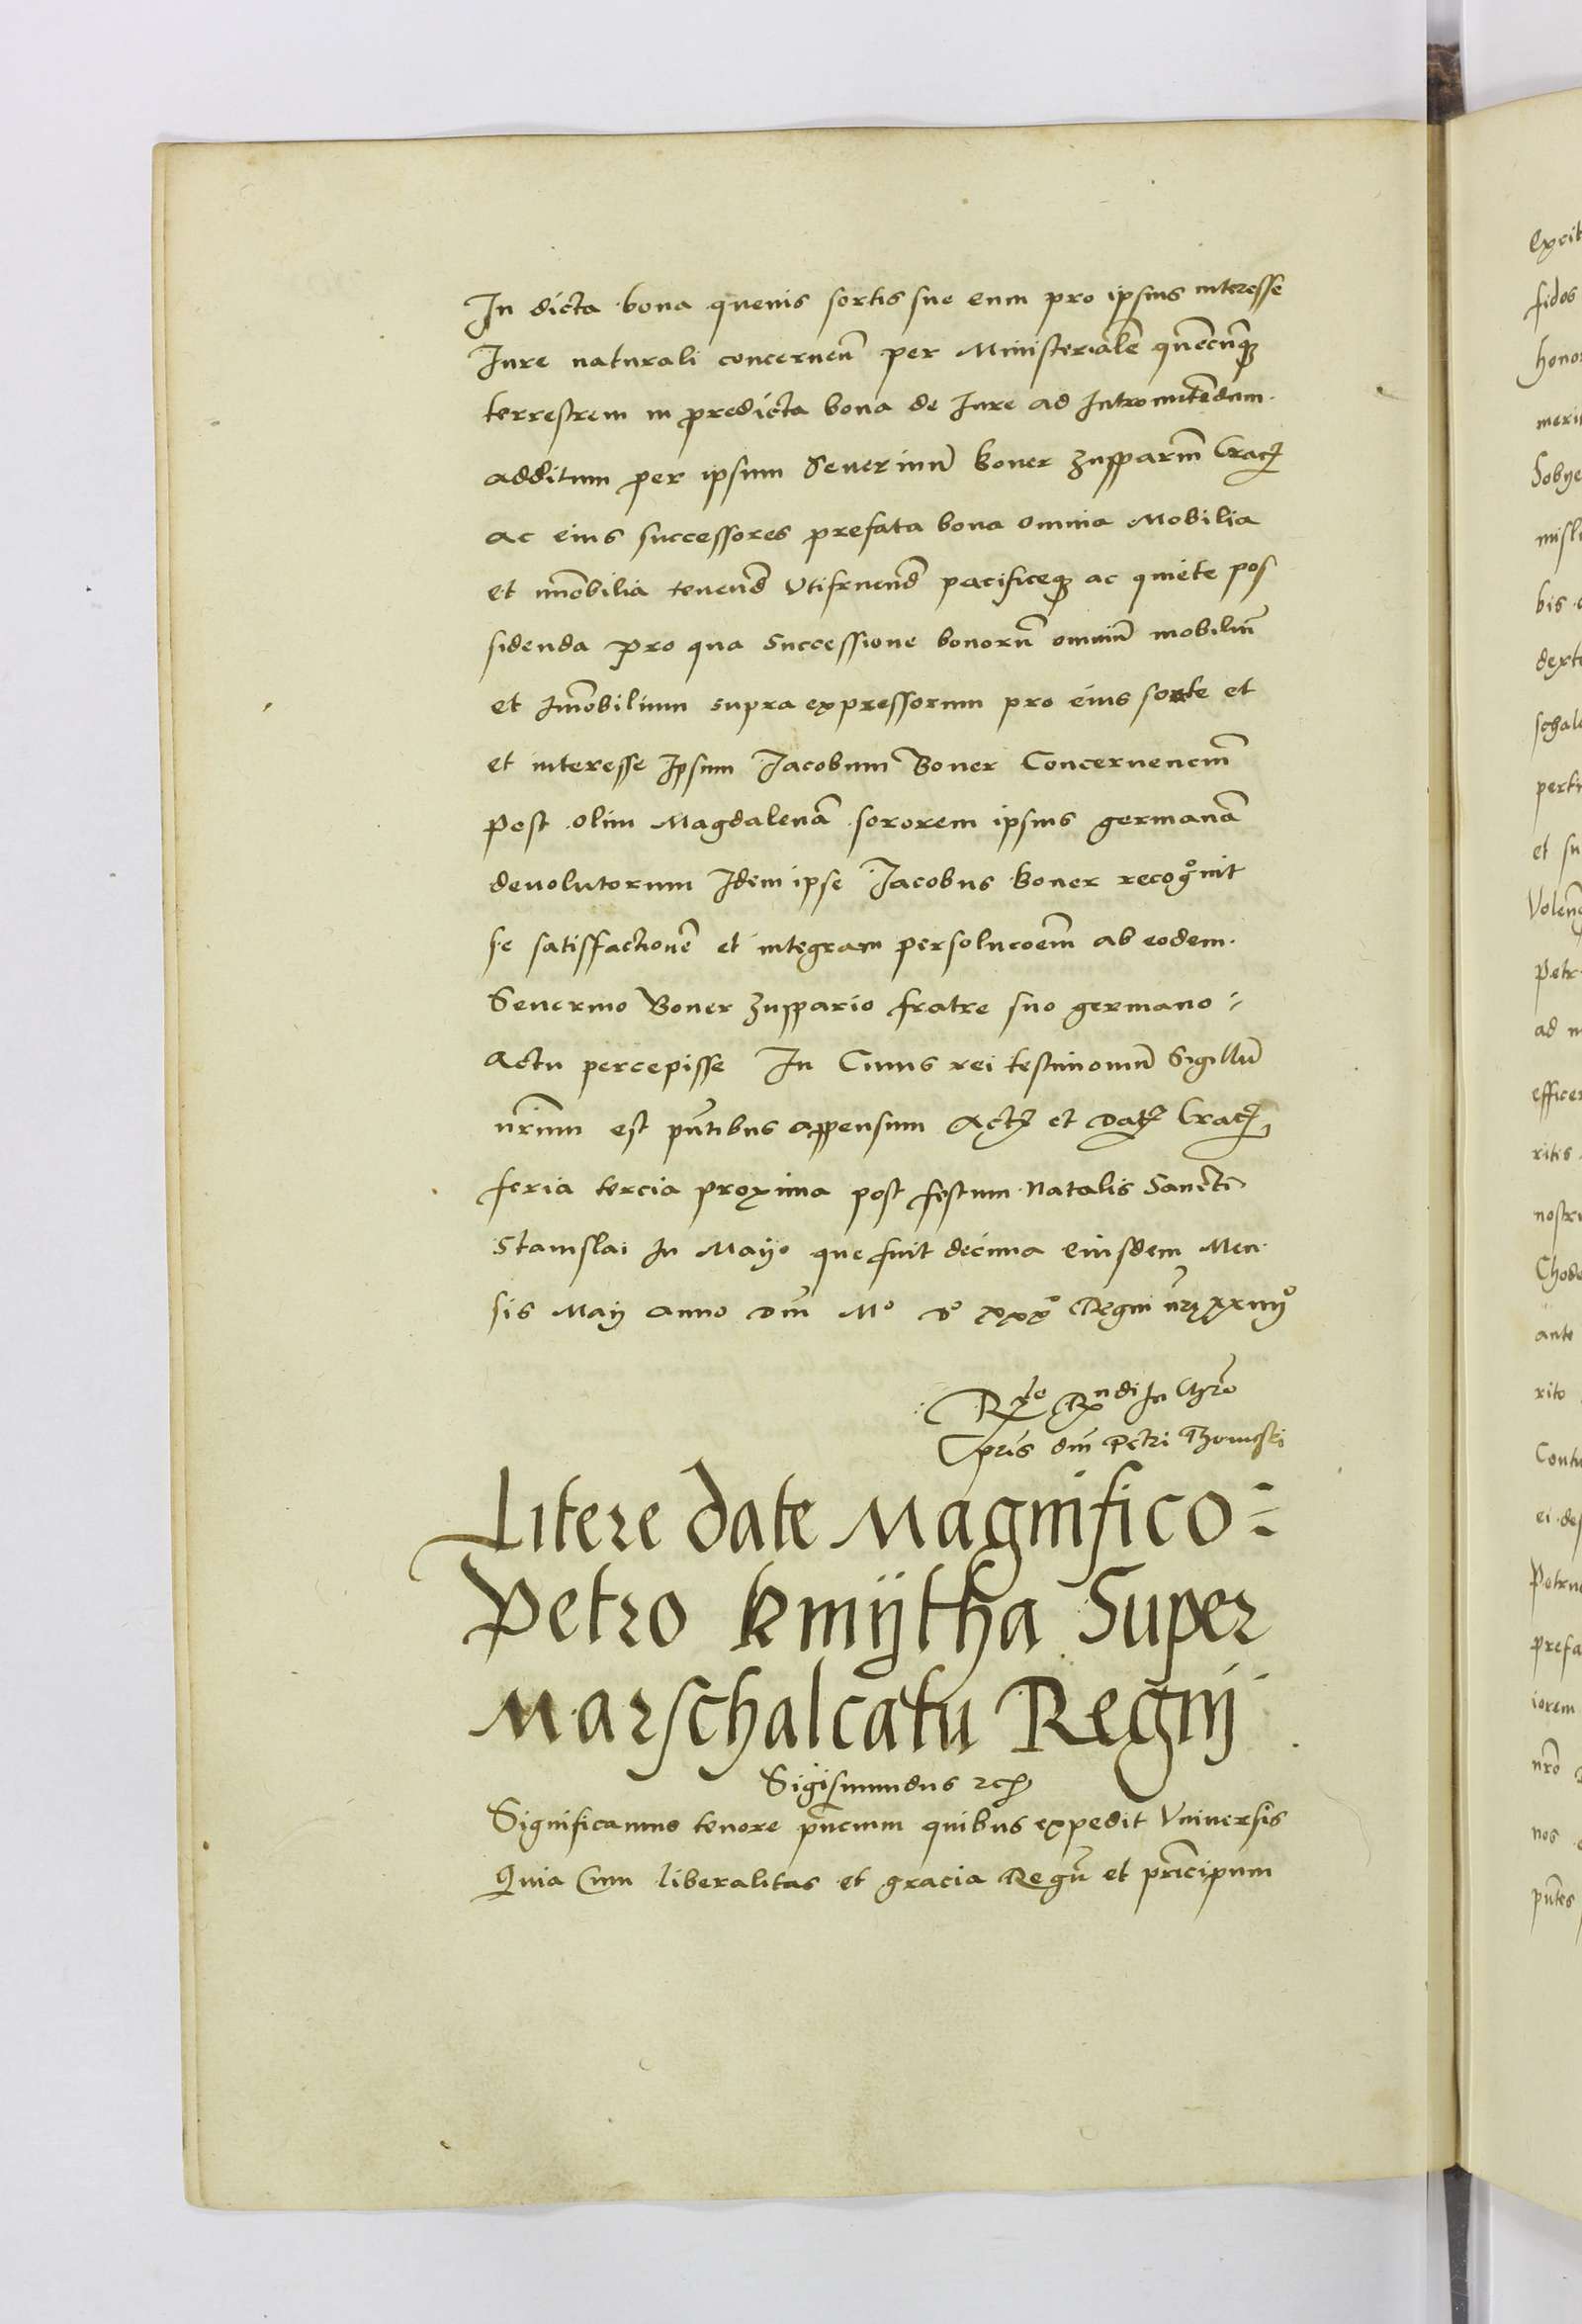 In dicta bona quevis sortis sue eum pro ipsius interesse
Iure naturali concerneñ per Ministerialẽ quẽcũqȝ
terrestrem in predicta bona de Iure ad Intromittẽdum
additum per ipsum Seuerinũ Boner zupparm̃ Cracꝭ
ac eius successores prefata bona omnia Mobilia
et im̃obilia tenend̃ Vtifruend̃ pacificeqȝ ac quiete pos
sidenda Pro qua Successione bonorũ omniũ mobiliũ
et Im̃obilium supra expressorum pro eius sorte et
et interesse Ipsum Iacobum Boner Concernencm̃
Post olim Magdalenã sororem ipsius germanã
deuolutorum Idem ipse Iacobus Boner recog̊nit
se satisfactionẽ et integram persolucoẽm ab eodem
Seuerino Boner Zuppario fratre suo germano
Actu percepisse In Cuius rei testimoniũ Sigillũ
nr̃um est pñtibus appensum Actꝭ et Datꝭ Cracꝭ
feria tercia proxima post festum Natalis Sancti
Stanislai In Mayo que fuit decima eiusdem Men
sis Maij Anno Dni̅ Mo do xxxo Regni nr̃i xxiiijo
Rlo Rndi In Chro
pris dni̅ Petri Thomicki
Litere date Magnifico
Petro kmijtha Super
Marschalcatu Regnij
Sigismundus ꝛcꝭ
Significamus tenore pñcium quibus expedit Vniuersis
Quia Cum liberalitas et gracia Regũ et Principum